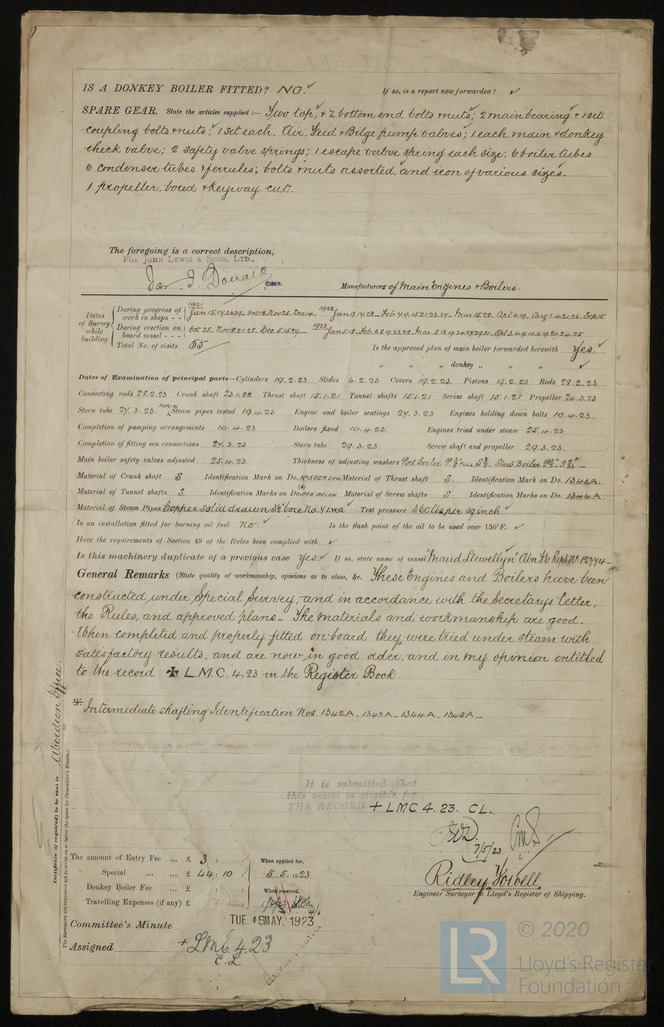 IS A DONKEY BOILER FITTED? NO. If so, is a report now forwarded?
SPARE GEAR. State the articles supplied:— Two top, & 2 bottom end bolts & nuts; 2 main bearing & 1 set
coupling bolts & nuts; 1 set each. Air, Feed & Bilge pump valves; 1 each main & donkey
check valve; 2 safety valve springs; 1 escape valve spring each size; 6 boiler tubes
6 condenser tubes & ferrules; bolts & nuts assorted, and iron of various sizes.
1 propeller, bored & keyway cut.
The foregoing is a correct description,
FOR JOHN LEWIS & SONS, LTD.,
Manufacturers of Main Engines & Boilers.
Dates of Survey while building
During progress of work in shops - -
During erection on board vessel - - -
Total No. of visits
Is the approved plan of main boiler forwarded herewith Yes
" " " donkey " " "
Dates of Examination of principal parts—Cylinders 19.2.23 Slides 6.2.23 Covers 19.2.23 Pistons 19.2.23 Rods 28.2.23
Connecting rods 28.2.23 Crank shaft 23.1.22 Thrust shaft 15.1.21 Tunnel shafts 15.1.21 Screw shaft 15.1.21 Propeller 24.3.23
Stern tube 24.3.23 Main Steam pipes tested 19.4.23 Engine and boiler seatings 24.3.23 Engines holding down bolts 10.4.23
Completion of pumping arrangements 10.4.23 Boilers fixed 10.4.23 Engines tried under steam 25.4.23
Completion of fitting sea connections 24.3.23 Stern tube 29.3.23 Screw shaft and propeller 29.3.23
Main boiler safety valves adjusted 25.4.23 Thickness of adjusting washers Port Boiler
Material of Crank shaft S Identification Mark on Do. Material of Thrust shaft S Identification Mark on Do. 1344A
Material of Tunnel shafts S Identification Marks on Do. See below Material of Screw shafts S Identification Marks on Do. 1346A
Material of Steam Pipes Copper solid drawn Test pressure 360 lbs per sq inch
Is an installation fitted for burning oil fuel No Is the flash point of the oil to be used over 150°F.
Have the requirements of Section 49 of the Rules been complied with
Is this machinery duplicate of a previous case Yes If so, state name of vessel "Maud Llewellyn" Abn
General Remarks (State quality of workmanship, opinions as to class, &c. These Engines and Boilers have been
constructed under Special Survey, and in accordance with the Secretary's letter,
the Rules, and approved plans. The materials and workmanship are good.
When completed and properly fitted on board they were tried under steam with
satisfactory results, and are now in good order, and in my opinion entitled
to the record ✠ L.M.C. 4.23 in the Register Book
* Intermediate shafting Identification Nos. 1342A – 1343A – 1344A – 1345A –
It is submitted that
this vessel is eligible for
THE RECORD + LMC 4.23. CL.
7/5/23
The amount of Entry Fee ... £ 3 : :
Special ... £ 44 : 10
Donkey Boiler Fee ... £ : :
Travelling Expenses (if any) £ : :
When applied for,
5.5.1923
When received,
Engineer Surveyor to Lloyd's Register of Shipping.
Committee's Minute TUE. 8 MAY 1923
Assigned + LMC 4.23
C.L
Certificate (if required) to be sent to Aberdeen Office.
LR
© 2020
Lloyd's Register
Foundation